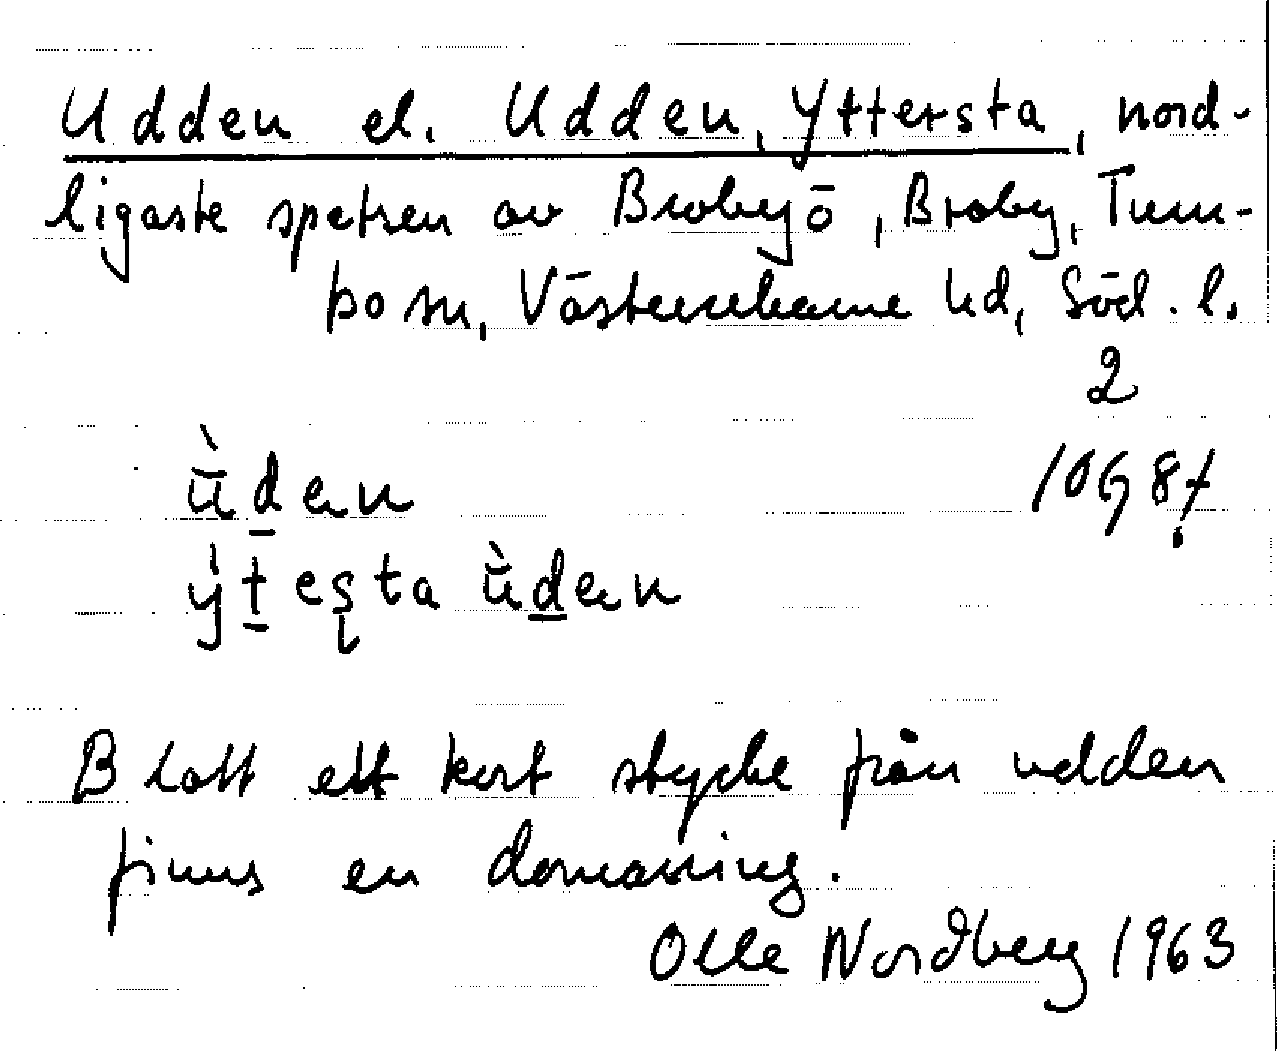 Udden el. Udden, Yttersta, nord-
ligaste spetsen av Brobyö, Broby, Tum-
bo sn, Västerrekarne hd, Söd. l.
2
10G 8f
ùden
ỳtesta ùden
Blott ett kort stycke från udden
finns en domarring.
Olle Nordberg 1963